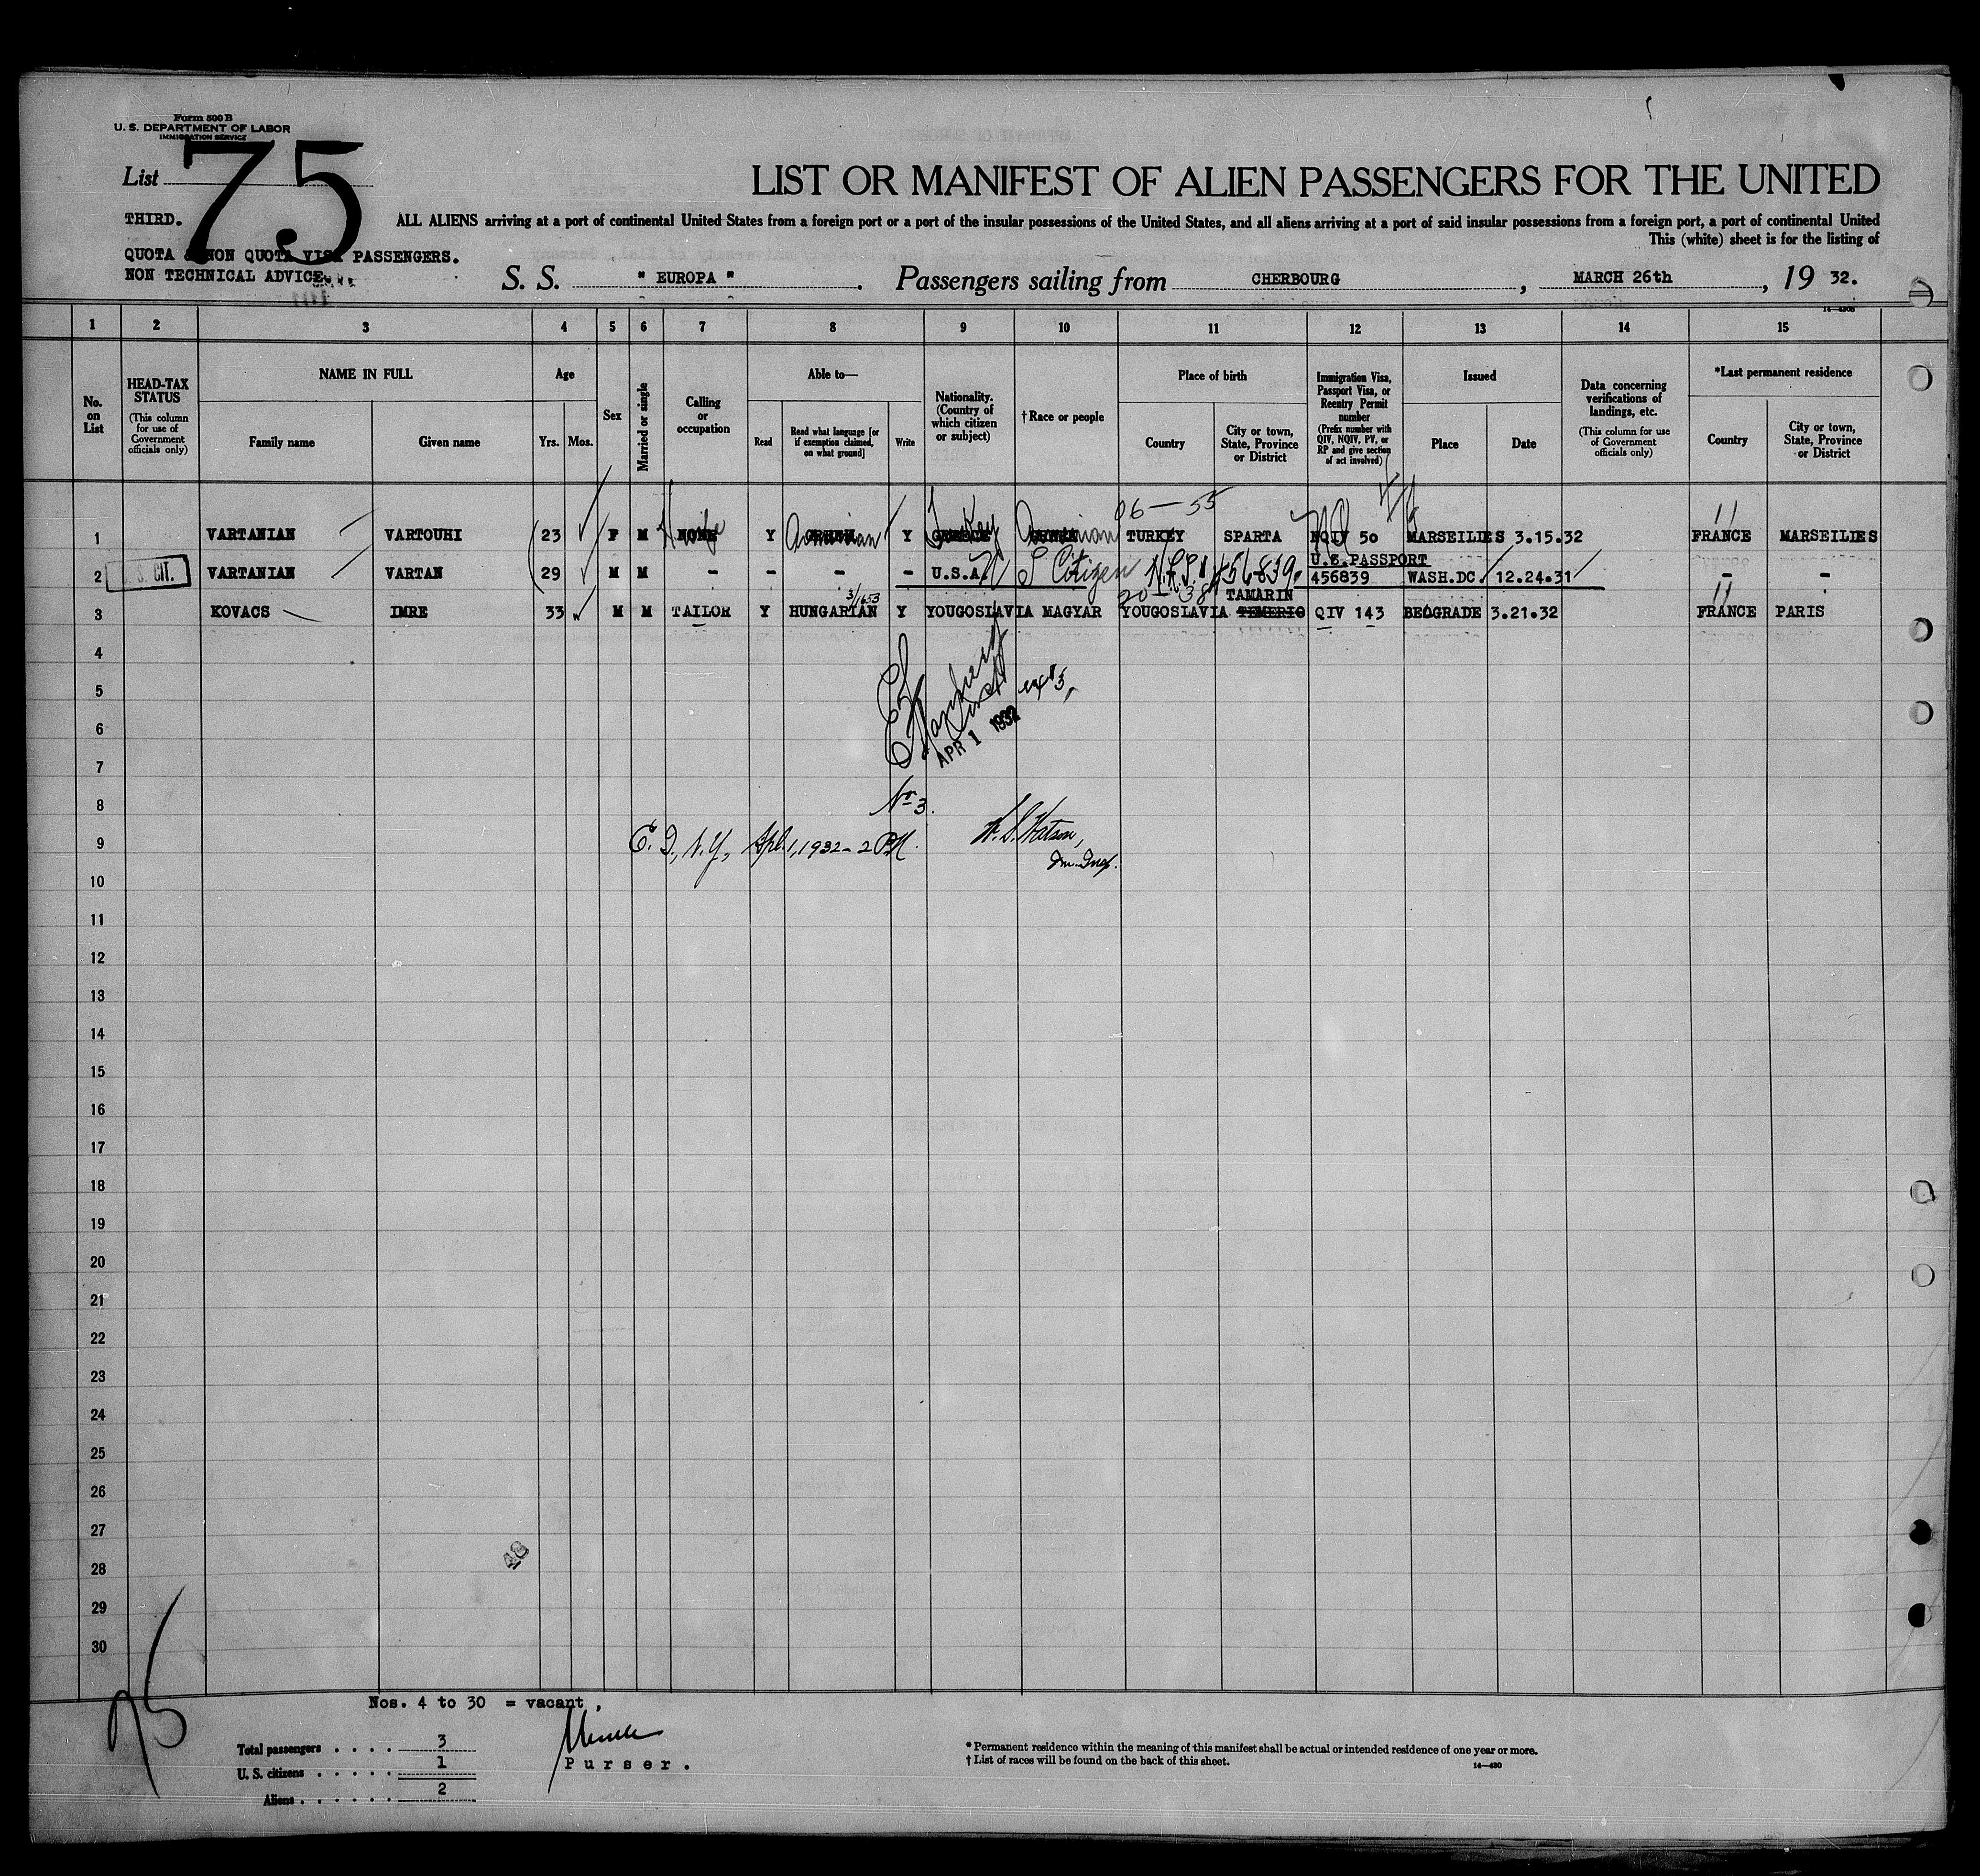 Form 500 B
U. S. DEPARTMENT OF LABOR
IMMIGRATION SERVICE
List 75
LIST OR MANIFEST OF ALIEN PASSENGERS FOR THE UNITED
THIRD.
ALL ALIENS arriving at a port of continental United States from a foreign port or a port of the insular possessions of the United States, and all aliens arriving at a port of said insular possessions from a foreign port, a port of continental United
This (white) sheet is for the listing of
QUOTA & NON QUOTA VISA PASSENGERS.
NON TECHNICAL ADVICE.
S. S. " EUROPA ". Passengers sailing from CHERBOURG, MARCH 26th, 19 32.
1 2 3 4 5 6 7 8 9 10 11 12 13 14 15
No. on List
HEAD-TAX STATUS (This column for use of Government officials only)
NAME IN FULL
Family name Given name
Age
Yrs. Mos.
Sex
Married or single
Calling or occupation
Able to—
Read Read what language [or if exemption claimed, on what ground] Write
Nationality. (Country of which citizen or subject)
†Race or people
Place of birth
Country City or town, State, Province or District
Immigration Visa, Passport Visa, or Reentry Permit number (Prefix number with QIV, NQIV, PV, or RP and give section of act involved)
Issued
Place Date
Data concerning verifications of landings, etc. (This column for use of Government officials only)
*Last permanent residence
Country City or town, State, Province or District
06-55
1 VARTANIAN VARTOUHI 23 F M NONE Y Armenian Y Turkey Armenian TURKEY SPARTA NQIV 50 MARSEILLES 3.15.32 FRANCE MARSEILLES
U.S.PASSPORT
2 U.S. CIT. VARTANIAN VARTAN 29 M M - - - - U.S.A. U S Citizen 456839. 456839 WASH.DC. 12.24.31 - -
TAMARIN
3 KOVACS IMRE 33 M M TAILOR Y HUNGARIAN Y YOUGOSLAVIA MAGYAR YOUGOSLAVIA TEMERIO QIV 143 BEOGRADE 3.21.32 FRANCE PARIS
4
5
6
APR 1 1932
7
8 No 3.
9 E. D., N.Y., Apl. 1, 1932 - 2 PM. W. S. Watson,
Im. Insp.
10
11
12
13
14
15
16
17
18
19
20
21
22
23
24
25
26
27
28
29
30
48
75
Nos. 4 to 30 = vacant,
Total passengers . . . . 3
U. S. citizens . . . . . 1
Aliens . . . . . . 2
Purser.
* Permanent residence within the meaning of this manifest shall be actual or intended residence of one year or more.
† List of races will be found on the back of this sheet.
14—430